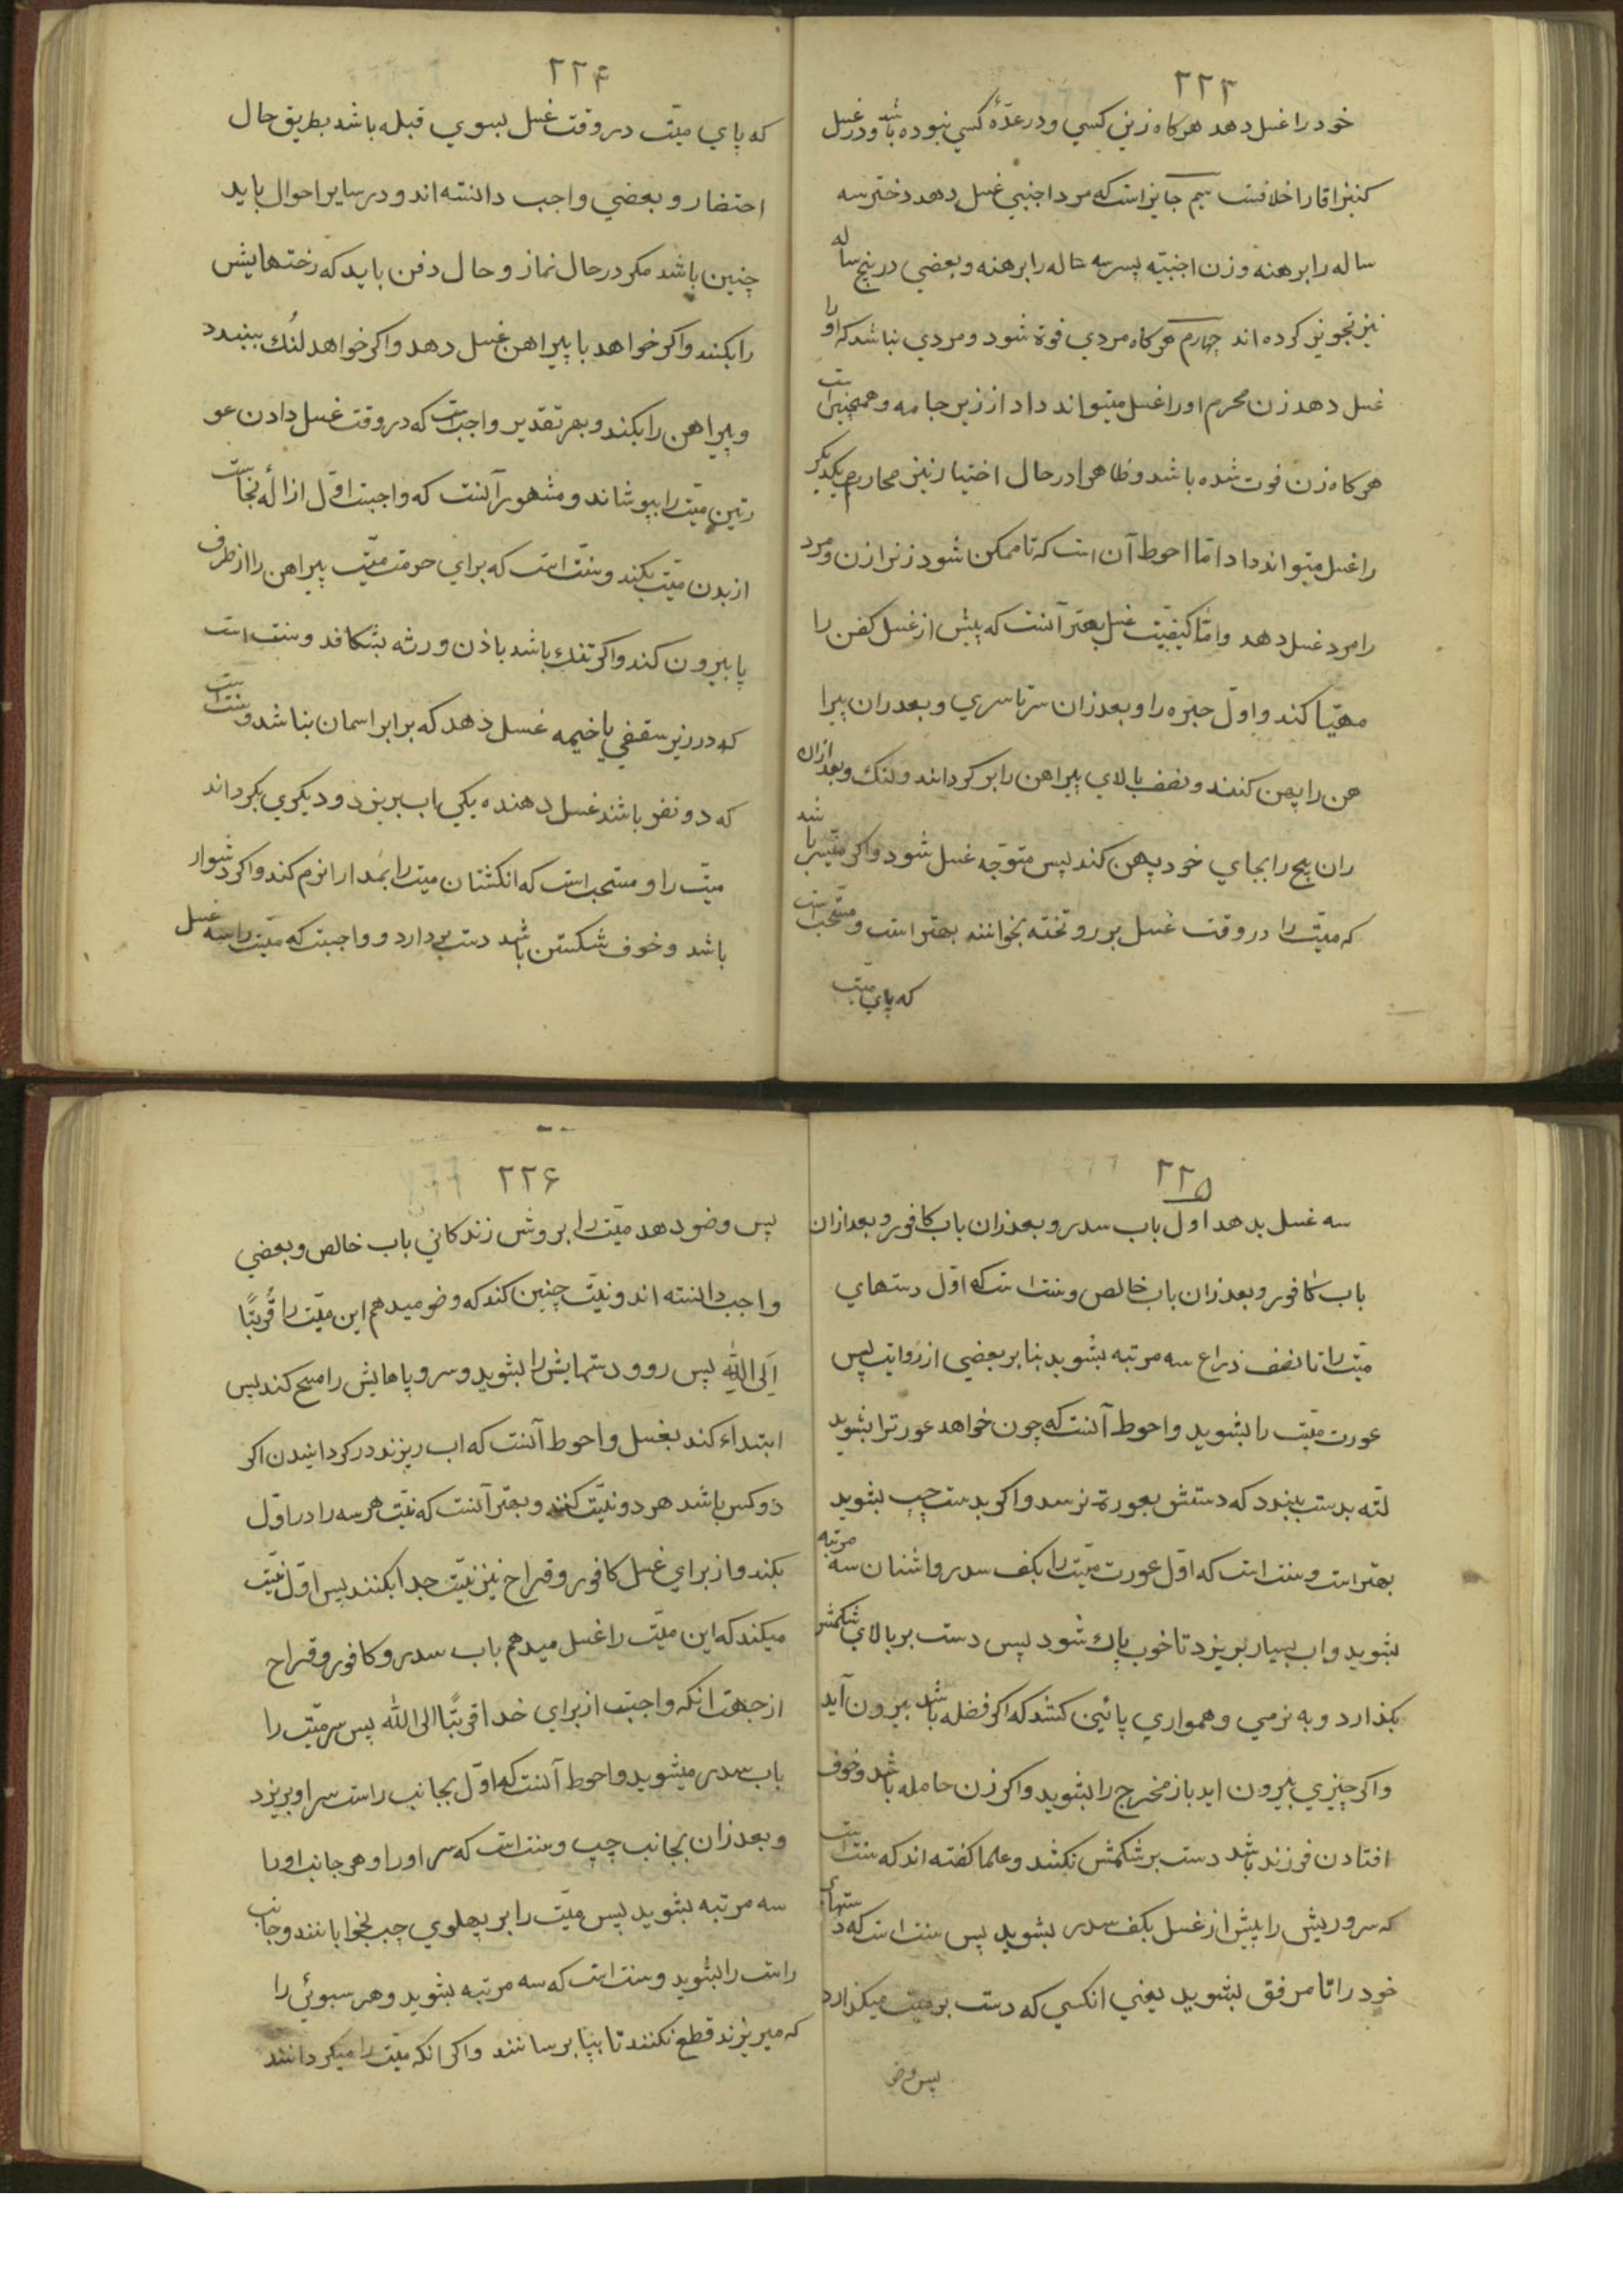 ۲۲۳
خود را غسل دهد هرکاه زین کسی و در عدّهٔ کسی نبوده باشد و در غسل
کنیز اقا را خلافست سیم جایز است که مرد اجنبی غسل دهد دختر سه
ساله را برهنه و زن اجنبیّه پسر سه ساله را برهنه و بعضی در پنج ساله
نیز تجویز کرده اند چهارم هرکاه مردی فوة شود و مردی نباشد که او را
غسل دهد زن محرم او را غسل میتواند داد از زیر جامه و همچنین است
هرکاه زن فوت شده باشد و ظاهرا در حال اختیار نیز محارم یکدیکر
را غسل میتواند داد امّا احوط آن است که تا ممکن شود زنرا زن و مرد
را مرد غسل دهد و امّا کیفیّت غسل بهتر آنست که پیش از غسل کفن را
مهیّا کند و اوّل حبره را و بعد زان سرتاسری و بعد زان پیرا
هن را پهن کنند و نصف بالای پیراهن را بر کردانند و لنك و بعد ازان
ران پیچ را بجای خود پهن کند پس متوّجه غسل شود و اکر میّسر باشد
که میّت را در وقت غسل بر رو تخته بخوانند بهتر است و مستّحب است
که پای میّت
۲۲۴
که پای میّت در وقت غسل بسوی قبله باشد بطریق حال
احتضار و بعضی واجب دانسته اند و در سایر احوال باید
چنین باشد مکر در حال نماز و حال دفن باید که رختهایش
را بکنند و اکر خواهد با پیراهن غسل دهد و اکر خواهد لُنك ببندد
و پیراهن را بکند و بهر تقدیر واجب است که در وقت غسل دادن عو
رتین میّت را بپوشاند و مشهور آنست که واجبت اوّل ازالهٔ نجاست
از بدن میّت بکند و سنّت است که برای حرمت میّت پیراهن را از طرف
پا بیرون کند و اکر تنك باشد باذن ورثه بشکافد و سنت است
که در زیر سقفی یا خیمه غسل دهد که برابر اسمان نباشد و سنت است
که دو نفر باشند غسل دهنده یکی اب بریزد و دیکری بکرداند
میّت را و مستحب است که انکشتان میت را بمدارا نرم کند و اکر دشوار
باشد و خوف شکستن باشد دست بردارد و واجبت که میّت را سه غسل
۲۲۵
سه غسل بدهد اول باب سدر و بعد زان باب کافور و بعد ازان
باب کافور و بعد زان باب خالص و سنت است که اوّل دستهای
میّت را تا نصف ذراع سه مرتبه بشوید بنا بر بعضی از روایت پس
عورت میّت را بشوید و احوط آنست که چون خواهد عورترا بشوید
لتّه بدست ببندد که دستش بعورة نرسد و اکر بدست چپ بشوید
بهتر است و سنت است که اوّل عورت میّت را بکف سدر و اشنان سه مرتبه
بشوید و اب بسیار بریزد تا خوب پاك شود پس دست بر بالای شکمش
بکذارد و به نرمی و همواری پائین کشد که اکر فضله باشد بیرون آید
و اکر چیزی بیرون اید باز مخرج را بشوید و اکر زن حامله باشد و خوف
افتادن فرزند باشد دست بر شکمش نکشد و علما کفته اند که سنت است
که سر و ریش را پیش از غسل بکف سدر بشوید پس سنت است که دستهای
خود را تا مرفق بشوید یعنی انکسی که دست بر میّت میکذارد
پس وضو
۲۲۶
پس وضو دهد میّت را بروش زندکانی باب خالص و بعضی
واجب دانسته اند و نیّت چنین کند که وضو میدهم این میّت را قُربتًا
اِلَی اللّهِ پس رو و دستهایش را بشوید و سر و پاهایش را مسح کند پس
ابتداء کند بغسل و احوط آنست که اب ریزند در کردانیدن اکر
دو کس باشد هر دو نیّت کنند و بهتر آنست که نیّت هر سه را در اوّل
بکند و از برای غسل کافور و قراح نیز نیّت جدا بکنند پس اوّل نیّت
میکند که این میّت را غسل میدهم باب سدر و کافور و قراح
از جهة انکه واجبت از برای خدا قربتًا الی اللّه پس سر میّت را
باب سدر میشوید و احوط آنست که اوّل بجانب راست سر او بریزد
و بعد زان بجانب چپ و سنت است که سر او را و هر جانب او را
سه مرتبه بشوید پس میّت را بر پهلوی چپ بخوابانند و جانب
راست را بشوید و سنت است که سه مرتبه بشوید و هر سبوئی را
که میریزند قطع نکنند تا بپا برسانند و اکر انکه میّت را میکردانند